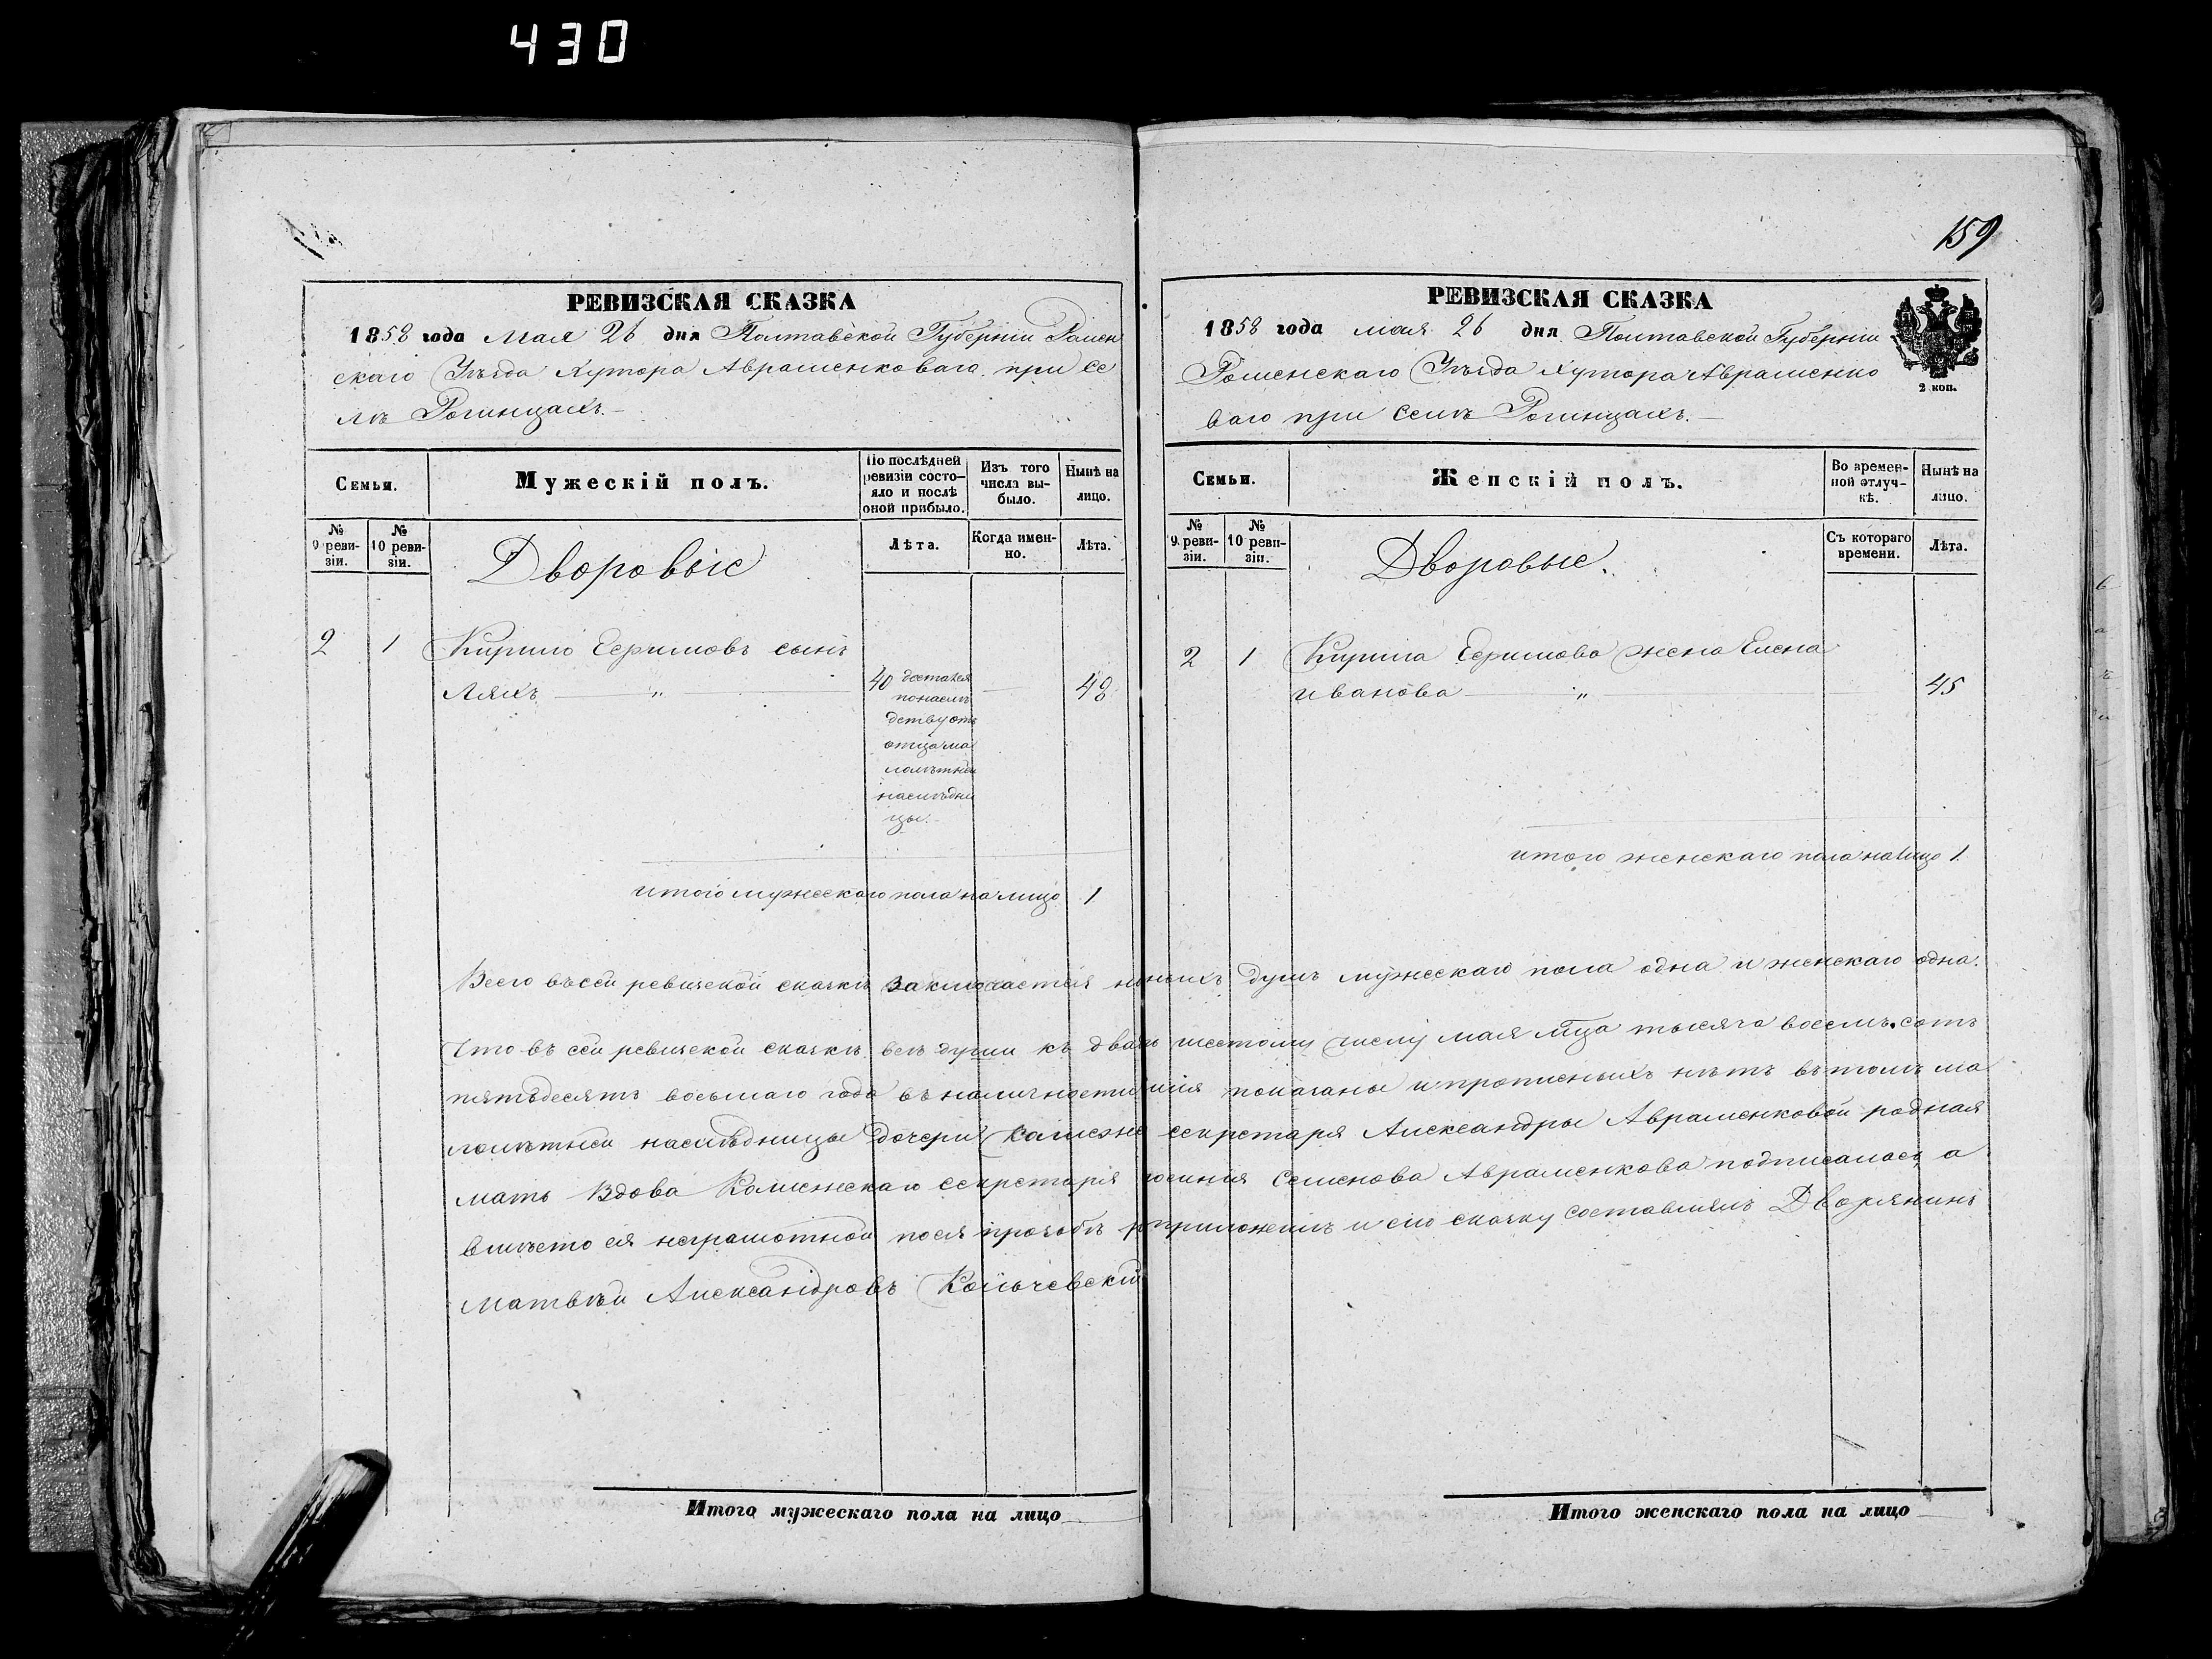 430
159
РЕВИЗСКАЯ СКАЗКА
1858 года Мая 26 дня Полтавской Губерніи Ромен
скаго Уѣзда Хутора Авраменковаго при се
лѣ Рогинцахъ.
Семьи.
Мужескій полъ.
По послѣдней ревизіи состояло и послѣ оной прибыло.
Изъ того числа выбыло.
Нынѣ на лицо.
№ 9 ревизіи.
№ 10 ревизіи.
Дворовые
Лѣта.
Когда именно.
Лѣта.
2 1 Кирило Ефимовъ сынъ
Ляхъ — " — 40 — 48
достался
по наслѣ
дству отъ
отца ма
лолѣтней
наслѣдни
цы.
итого мужескаго пола на лицо 1
РЕВИЗСКАЯ СКАЗКА
1858 года мая 26 дня Полтавской Губерніи
Роменскаго Уѣзда Хутора Авраменко
ваго при селѣ Рогинцахъ.
2 коп.
Семьи.
Женскій полъ.
Во временной отлучкѣ.
Нынѣ на лицо.
№ 9 ревизіи.
№ 10 ревизіи.
Дворовые.
Съ котораго времени.
Лѣта.
2 1 Кирила Ефимова жена Елена
Иванова — " 45
итого женскаго пола на лицо 1.
Всего въ сей ревизской сказкѣ заключается душъ мужескаго пола одна и женскаго одна.
Что въ сей ревизской сказкѣ всѣ души къ двадць шестому числу мая мца тысяча восемь сотъ
пятьдесятъ восьмаго года въ наличности показаны и прописныхъ нѣтъ въ томъ ма
лолѣтней наслѣдницы дочери секретаря Александры Авраменковой родная
мать Вдова Колежскаго секретаря Семенова Авраменкова подписалась, а
вмѣсто ея неграмотной по ея прозьбѣ приложилъ и сію сказку составлялъ Дворянинъ
Матвѣй Александровъ
Итого мужескаго пола на лицо
Итого женскаго пола на лицо